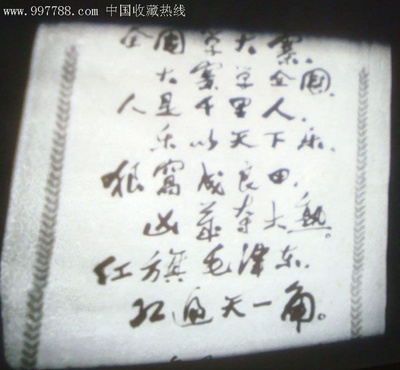 www.997788.com 中国收藏热线
全国学大寨.
大寨学全国.
人是千里人.
乐以天下乐.
狼窝成良田.
凶岁夺大熟。
红旗毛泽东.
红遍天一角。